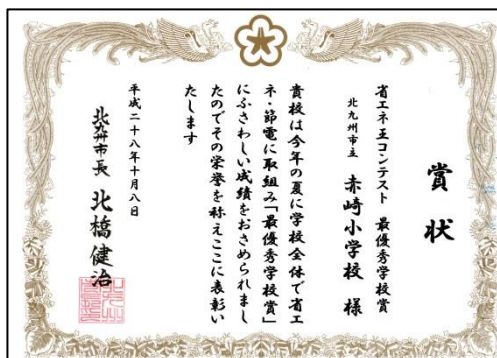 賞状
省エネ王コンテスト 最優秀学校賞
北九州市立 赤崎小学校 様
貴校は今年の夏に学校全体で省エ
ネ・節電に取組み「最優秀学校賞」
にふさわしい成績をおさめられまし
たのでその栄誉を称えここに表彰い
たします
平成二十八年十月八日
北九州市長 北橋健治